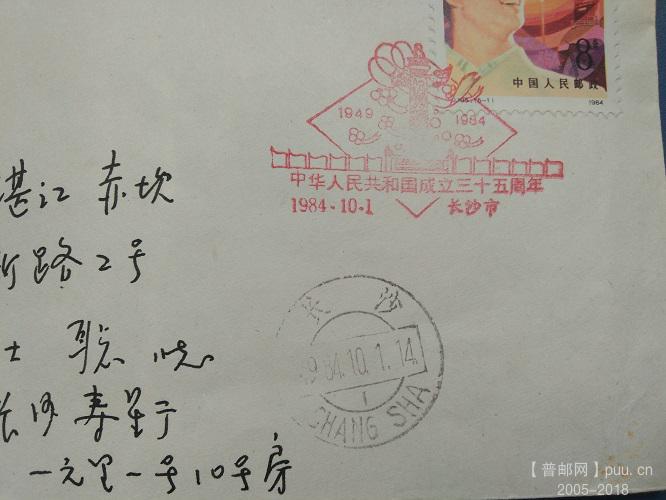 8分
中国人民邮政
1984
1949 1984
中华人民共和国成立三十五周年
1984.10.1 长沙市
湛江 赤坎
路2号
长沙
1984.10.1.14
1
CHANG SHA
长沙寿星
一元里一号10号房
【普邮网】puu.cn
2005-2018